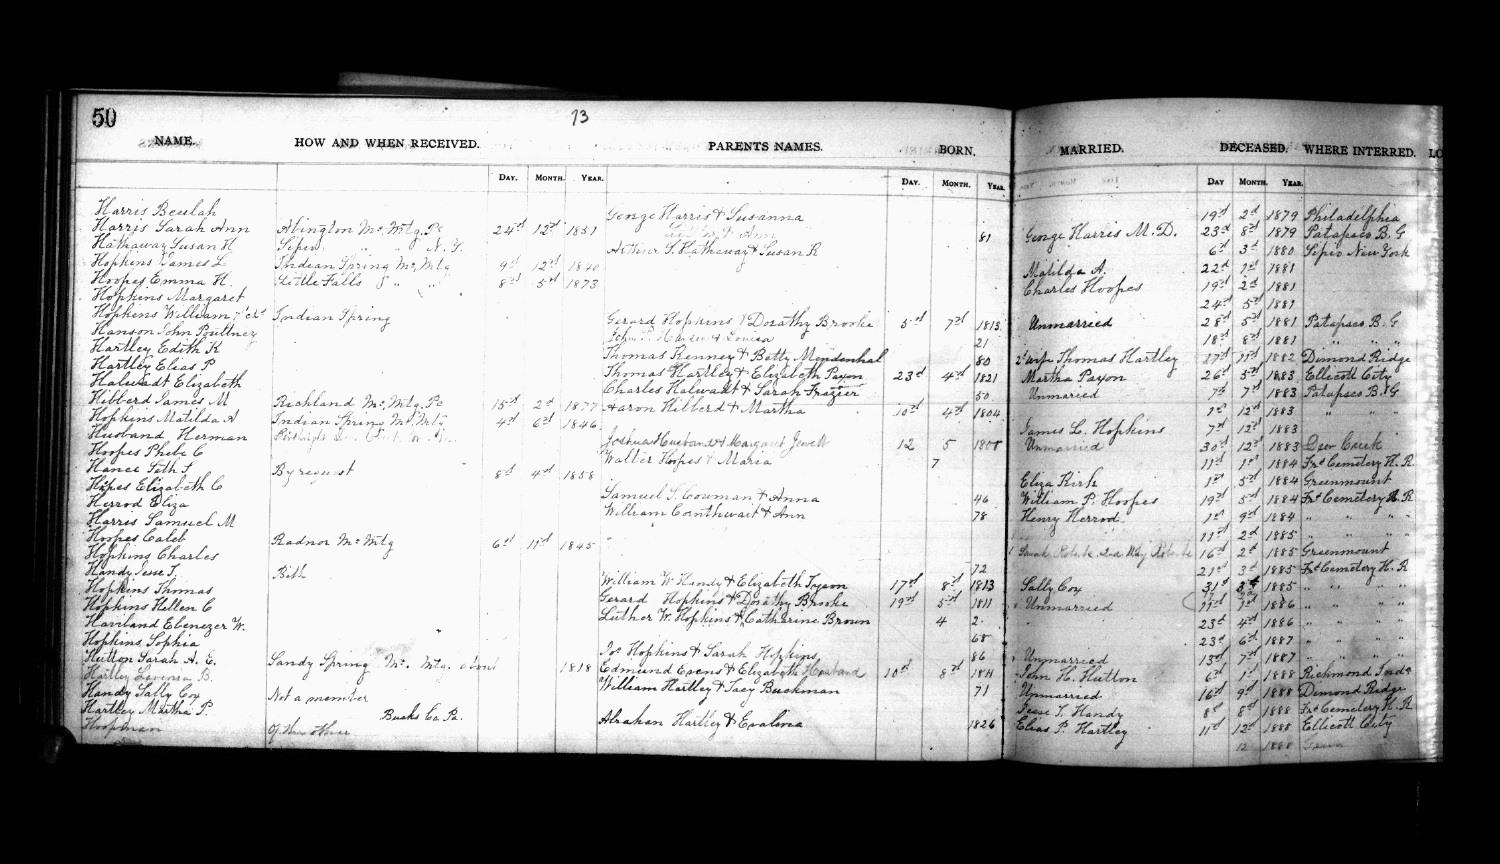 50
73
NAME. HOW AND WHEN RECEIVED. PARENTS NAMES. BORN. MARRIED. DECEASED. WHERE INTERRED.
DAY. MONTH. YEAR. DAY. MONTH. YEAR. DAY MONTH. YEAR.
Harris Beulah George Harris & Susanna 19th 2d 1879 Philadelphia
Harris Sarah Ann Abington Mo. Mtg. Pa 24th 12th 1851 & Ann 81 George Harris M. D. 23d 8th 1879 Patapsco B. G
Hathaway Susan H " " N. Y. Arthur S. Hathaway & Susan R 6th 3d 1880 New York
Hopkins James L Indian Spring Mo. Mtg 9th 12th 1840 Matilda A. 22d 1st 1881
Hoopes Emma H. Little Falls " " 8th 5th 1873 Charles Hoopes 19th 2d 1881
Hopkins Margaret 24th 5th 1881
Hopkins William Indian Spring Gerard Hopkins & Dorathy Brooke 5th 7th 1813 Unmarried 28th 5th 1881 Patapsco B. G
Hanson John Poultney & Louisa 21 18th 8th 1881 " " "
Hartley Edith K Thomas Kenney & Betty Mendenhal 80 2d wife Thomas Hartley 17th 11th 1882 Dimond Ridge
Hartley Elias P Thomas Hartley & Elizabeth Paxon 23d 4th 1821 Martha Paxon 26th 5th 1883 Ellicott City
Halwadt Elizabeth Charles Halwadt & Sarah Frazier 50 Unmaried 7th 7th 1883 Patapsco B. G
Hibberd James M Richland Mo. Mtg. Pa 15th 2d 1877 Aaron Hibberd & Martha 10th 4th 1804 1st 12th 1883 " "
Hopkins Matilda A Indian Spring Mo. Mtg 4th 6th 1846 James L. Hopkins 7th 12th 1883
Husband Herman Joshua Husband & Margaret Jewett 12 5 Unmarried 30th 12th 1883 Deer Creek
Hoopes Phebe C Walter Hoopes & Maria 7 11th 1st 1884 Frds Cemetery H. R.
Hance Seth S By request 8th 4th 1858 Eliza Kirk 1st 5th 1884 Greenmount
Hopes Elizabeth C Samuel S. Cowman & Anna 46 William P. Hoopes 19th 5th 1884 Frds Cemetery H R
Herrod Eliza William Cornthwait & Ann 78 Henry Herrod 1st 9th 1884 " " " "
Harris Samuel M 11th 2d 1885 " " " "
Hoopes Caleb Radnor Mo Mtg 6th 11th 1845 16th 2d 1885 Greenmount
Hopkins Charles 72 21st 3d 1885 Frds Cemetery H. R
Handy Jesse T. Birth William W Handy & Elizabeth Tyson 17th 8th 1813 Sally Cox 31st 1885 " " " "
Hopkins Thomas Gerard Hopkins & Dorathy Brooke 19th 5th 1811 Unmarried 11th 1st 1886 " " " "
Hopkins Hellen C Luther W. Hopkins & Catharine Brown 4 2 23d 4th 1886 " " " "
Haviland Ebenezer W. 68 23d 6th 1887 " " " "
Hopkins Sophia Jos Hopkins & Sarah Hopkins 86 Unmarried 13th 7th 1887 " " " "
Hutton Sarah A. E. Sandy Spring Mo. Mtg. about 1818 Edmund Evens & Elizabeth Husband 10th 8th 1811 John H. Hutton 6th 1st 1888 Richmond Inda
Hartley Lavenia B. William Hartley & Tacy Buckman 71 Unmarried 16th 9th 1888 Dimond Ridge
Handy Sally Cox Not a member Jesse T. Handy 8th 8th 1888 Frds Cemetery H. R
Hartley Martha P. Bucks Co. Pa. Abraham Hartley & Evalina 1826 Elias P. Hartley 11th 12th 1888 Ellicott City
Hoopman 12 1888